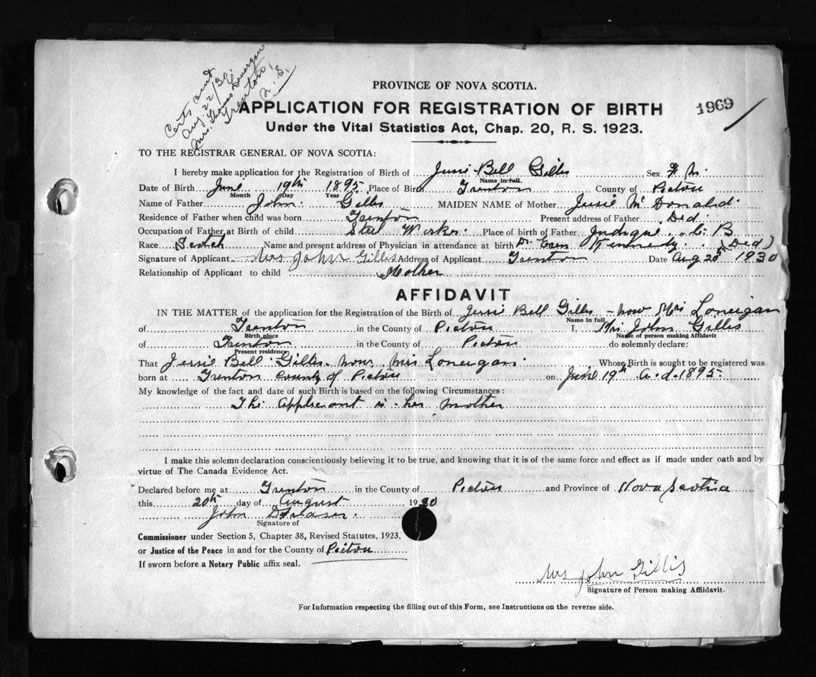 Certs sent
Aug 22/30
Mrs. Thomas Lonergan
Trenton,
N. S.
PROVINCE OF NOVA SCOTIA.
APPLICATION FOR REGISTRATION OF BIRTH
1969
Under the Vital Statistics Act, Chap. 20, R. S. 1923.
TO THE REGISTRAR GENERAL OF NOVA SCOTIA:
I hereby make application for the Registration of Birth of Jessie Bell Gillis Sex F
Name in full
Date of Birth June 19th 1895 Place of Birth Trenton County of Pictou
Month Day Year
Name of Father John Gillis MAIDEN NAME of Mother Jessie McDonald
Residence of Father when child was born Trenton Present address of Father Ded.
Occupation of Father at Birth of child Steel Worker Place of birth of Father C. B
Race Scotch Name and present address of Physician in attendance at birth Dr. Kennedy (Ded)
Signature of Applicant Mrs John Gillis Address of Applicant Trenton Date Aug 20th 1930
Relationship of Applicant to child Mother
AFFIDAVIT
IN THE MATTER of the application for the Registration of the Birth of Jessie Bell Gillis - now Mrs Lonergan
Name in full
of Trenton in the County of Pictou I, Mrs John Gillis
Birth place Name of person making Affidavit
of Trenton in the County of Pictou do solemnly declare:
Present residence
That Jessie Bell Gillis now Mrs Lonergan Whose Birth is sought to be registered was
born at Trenton County of Pictou on June 19th A. D. 1895.
My knowledge of the fact and date of such Birth is based on the following Circumstances:
The Applicant is her mother
I make this solemn declaration conscientiously believing it to be true, and knowing that it is of the same force and effect as if made under oath and by
virtue of The Canada Evidence Act.
Declared before me at Trenton in the County of Pictou and Province of Nova Scotia
this 20th day of August 1930
John
Signature of
Commissioner under Section 5, Chapter 38, Revised Statutes, 1923.
or Justice of the Peace in and for the County of Pictou
If sworn before a Notary Public affix seal.
Mrs John Gillis
Signature of Person making Affidavit.
For Information respecting the filling out of this Form, see Instructions on the reverse side.